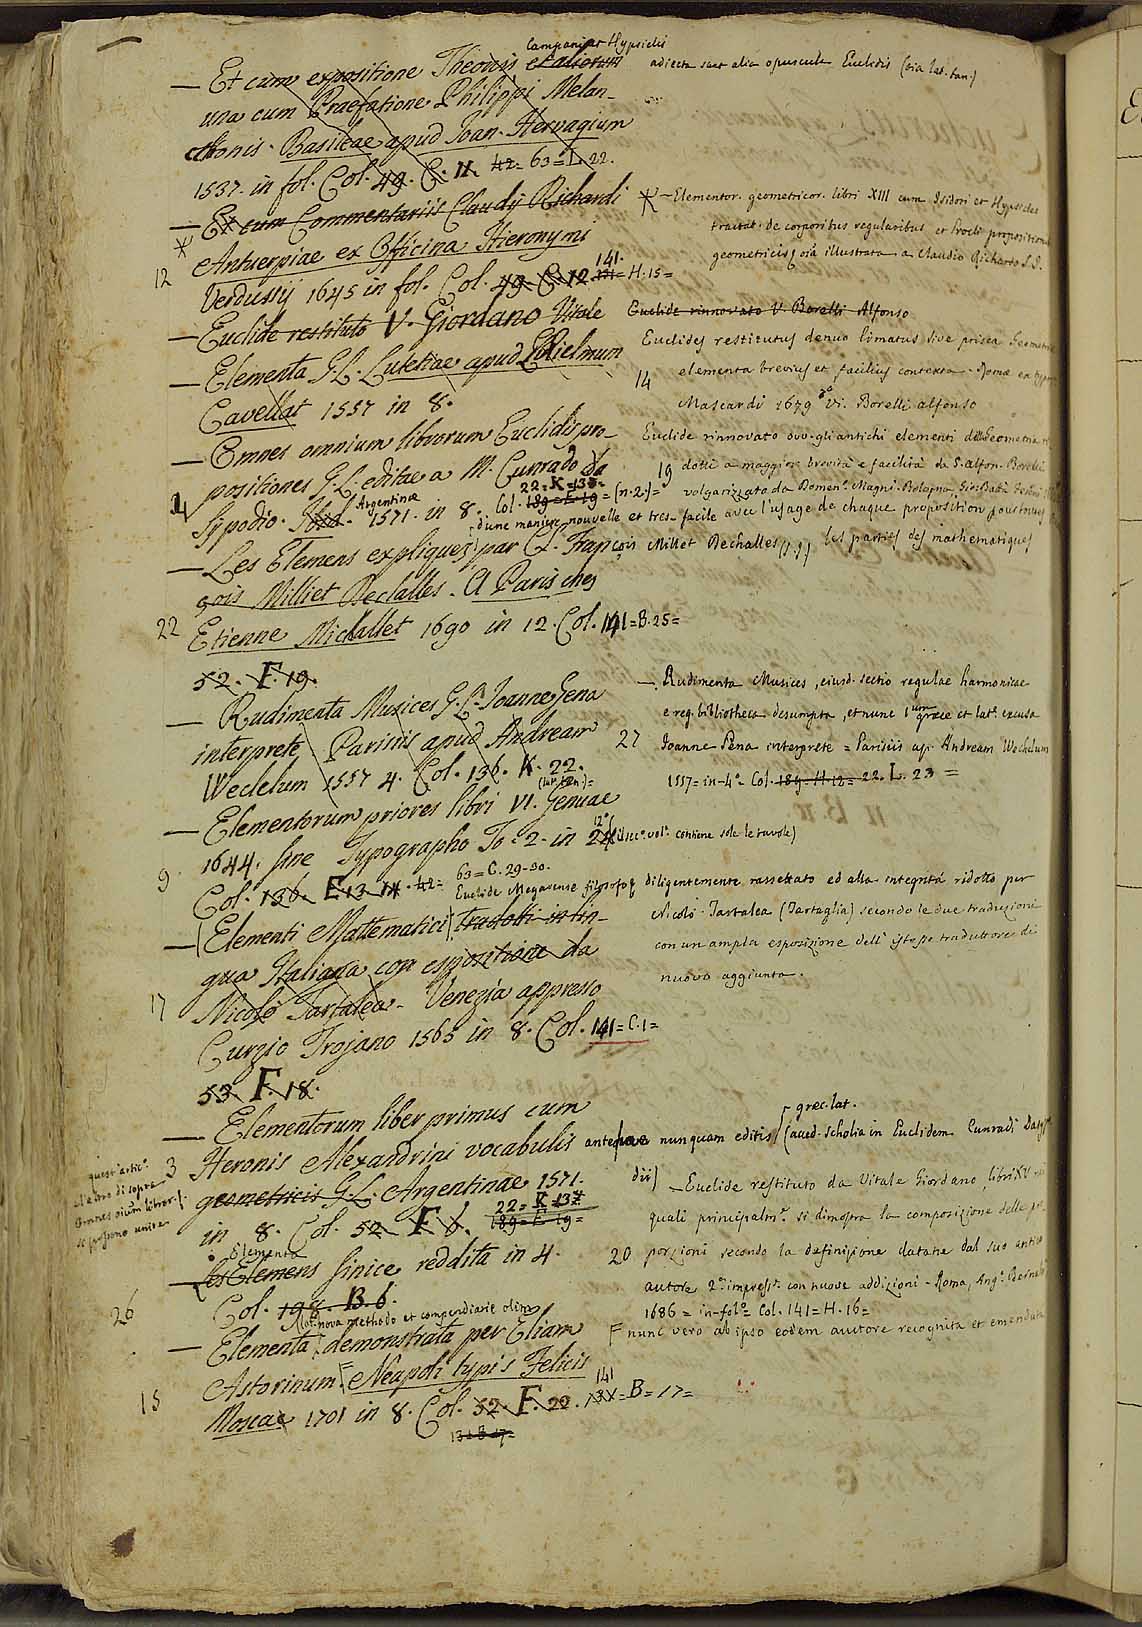 Campani et Hypsiclis
— Et cum expositione Theonis et aliorum adiecta sunt alia opuscula Euclidis (oia lat. tan.)
una cum Praefatione Philippi Melan-
cthonis. Basileae apud Joan. Hervagium
1537. in fol. Col. 49. C. 11. 42. 63 = L. 22.
— Et cum Commentariis Claudij Richardi
Antuerpiae ex Officina Hieronymi
12 Verdussij 1645 in fol. Col. 49. C. 12. 141. = H. 15 =
* — Elementor. geometricor. libri XIII cum Isidori et Hypsiclis
tractat. de corporibus regularibus et Procli propositionibus
geometricis, oia illustrata a Claudio Richardo S.J.
— Euclide restituto V. Giordano Vitale
Euclide rinnovato V. Borelli Alfonso
Euclides restitutus denuo limatus sive prisca Geometriae
14 elementa brevius et facilius contexta. Romae ex typis
Mascardi 1679 Vi. Borelli alfonso
— Elementa G.L. Lutetiae apud Gulielmum
Cavellat 1557 in 8.
— Omnes omnium librorum Euclidis pro-
positiones G.L. editae a M. Cunrado Da
4 sypodio. Argentinae 1571. in 8. Col. 189 = E. 19 = (n. 2.) =
22. K. 13.
Euclide rinnovato ovv. gli antichi elementi della Geometria ri
19 dotti a maggior brevità e facilità da S. alfon. Borelli
volgarizzato da Domen. Magni. Bologna, Gio. Batta
d'une maniere nouvelle et tres-facile avec l'usage de chaque proposition pour toutes
— Les Elemens expliquez par C. Fran çois Milliet Dechalles S.J. les parties des mathematiques
çois Milliet Dechalles. A Paris ches
22 Etienne Michallet 1690 in 12. Col. 141 = B. 25 =
52. F. 19.
— Rudimenta Musices G.L. Joanne Pena
interprete Parisiis apud Andream
Wechelum 1557 4. Col. 136. K. 22.
— Rudimenta Musices, eiusd. sectio regulae harmonicae
e reg. bibliotheca desumpta, et nunc 1um graece et lat. excusa
27 Joanne Pena interprete = Parisiis ap. Andream Wechelum
1557 = in-4° = Col. 189 = H. 12 = 22. L. 23 =
(lat. tan.) =
— Elementorum priores libri VI. Genuae
1644. sine Typographo To: 2. in 24 12° (il sec. vol. contiene solo le tavole)
9 Col. 136. E 13. 14. 42 = 63 = C. 29-30.
Euclide Megarense filosofo diligentemente rassettato ed alla integrità ridotto per
Nicolò Tartalea (Tartaglia) secondo le due traduzioni
con un ampla esposizione dell' istesso traduttore di
nuovo aggiunta.
— (Elementi Mattematici) tradotti in lin-
gua Italiana con esposizione da
17 Nicolò Tartalea. Venezia appresso
Curzio Trojano 1565 in 8. Col. 141 = C. 1 =
53. F. 18.
— Elementorum liber primus cum
graec. lat.
3 Heronis Alexandrini vocabulis antehac nunquam editis (aved. scholia in Euclidem Cunradi Dasypo
dii)
geometricis G.L. Argentinae 1571.
in 8. Col. 52. F. 6. 189 = E 19 =
22 = K 13
quest' artic.
e l' altro di sopra
Omnes oium libror.
si possono unire
— Euclide restituto da Vitale Giordano libri XV
quali principalm. si dimostra la composizione delle pro
20 porzioni secondo la definizione datane dal suo antico
autore 2° impress. con nuove addizioni. Roma, Ang. Bernabò
1686 = in-fol° = Col. 141 = H. 16 =
Elementa
— Les Elemens sinice reddita in 4.
26 Col. 198. B. 6.
nova methodo et compendiarie olim
— Elementa demonstrata per Eliam
Astorinum. Neapoli typis Felicis
F nunc vero ab ipso eodem auctore recognita et emendata
15 Moscae 1701 in 8. Col. 52. F. 22. 141 = B = 17 =